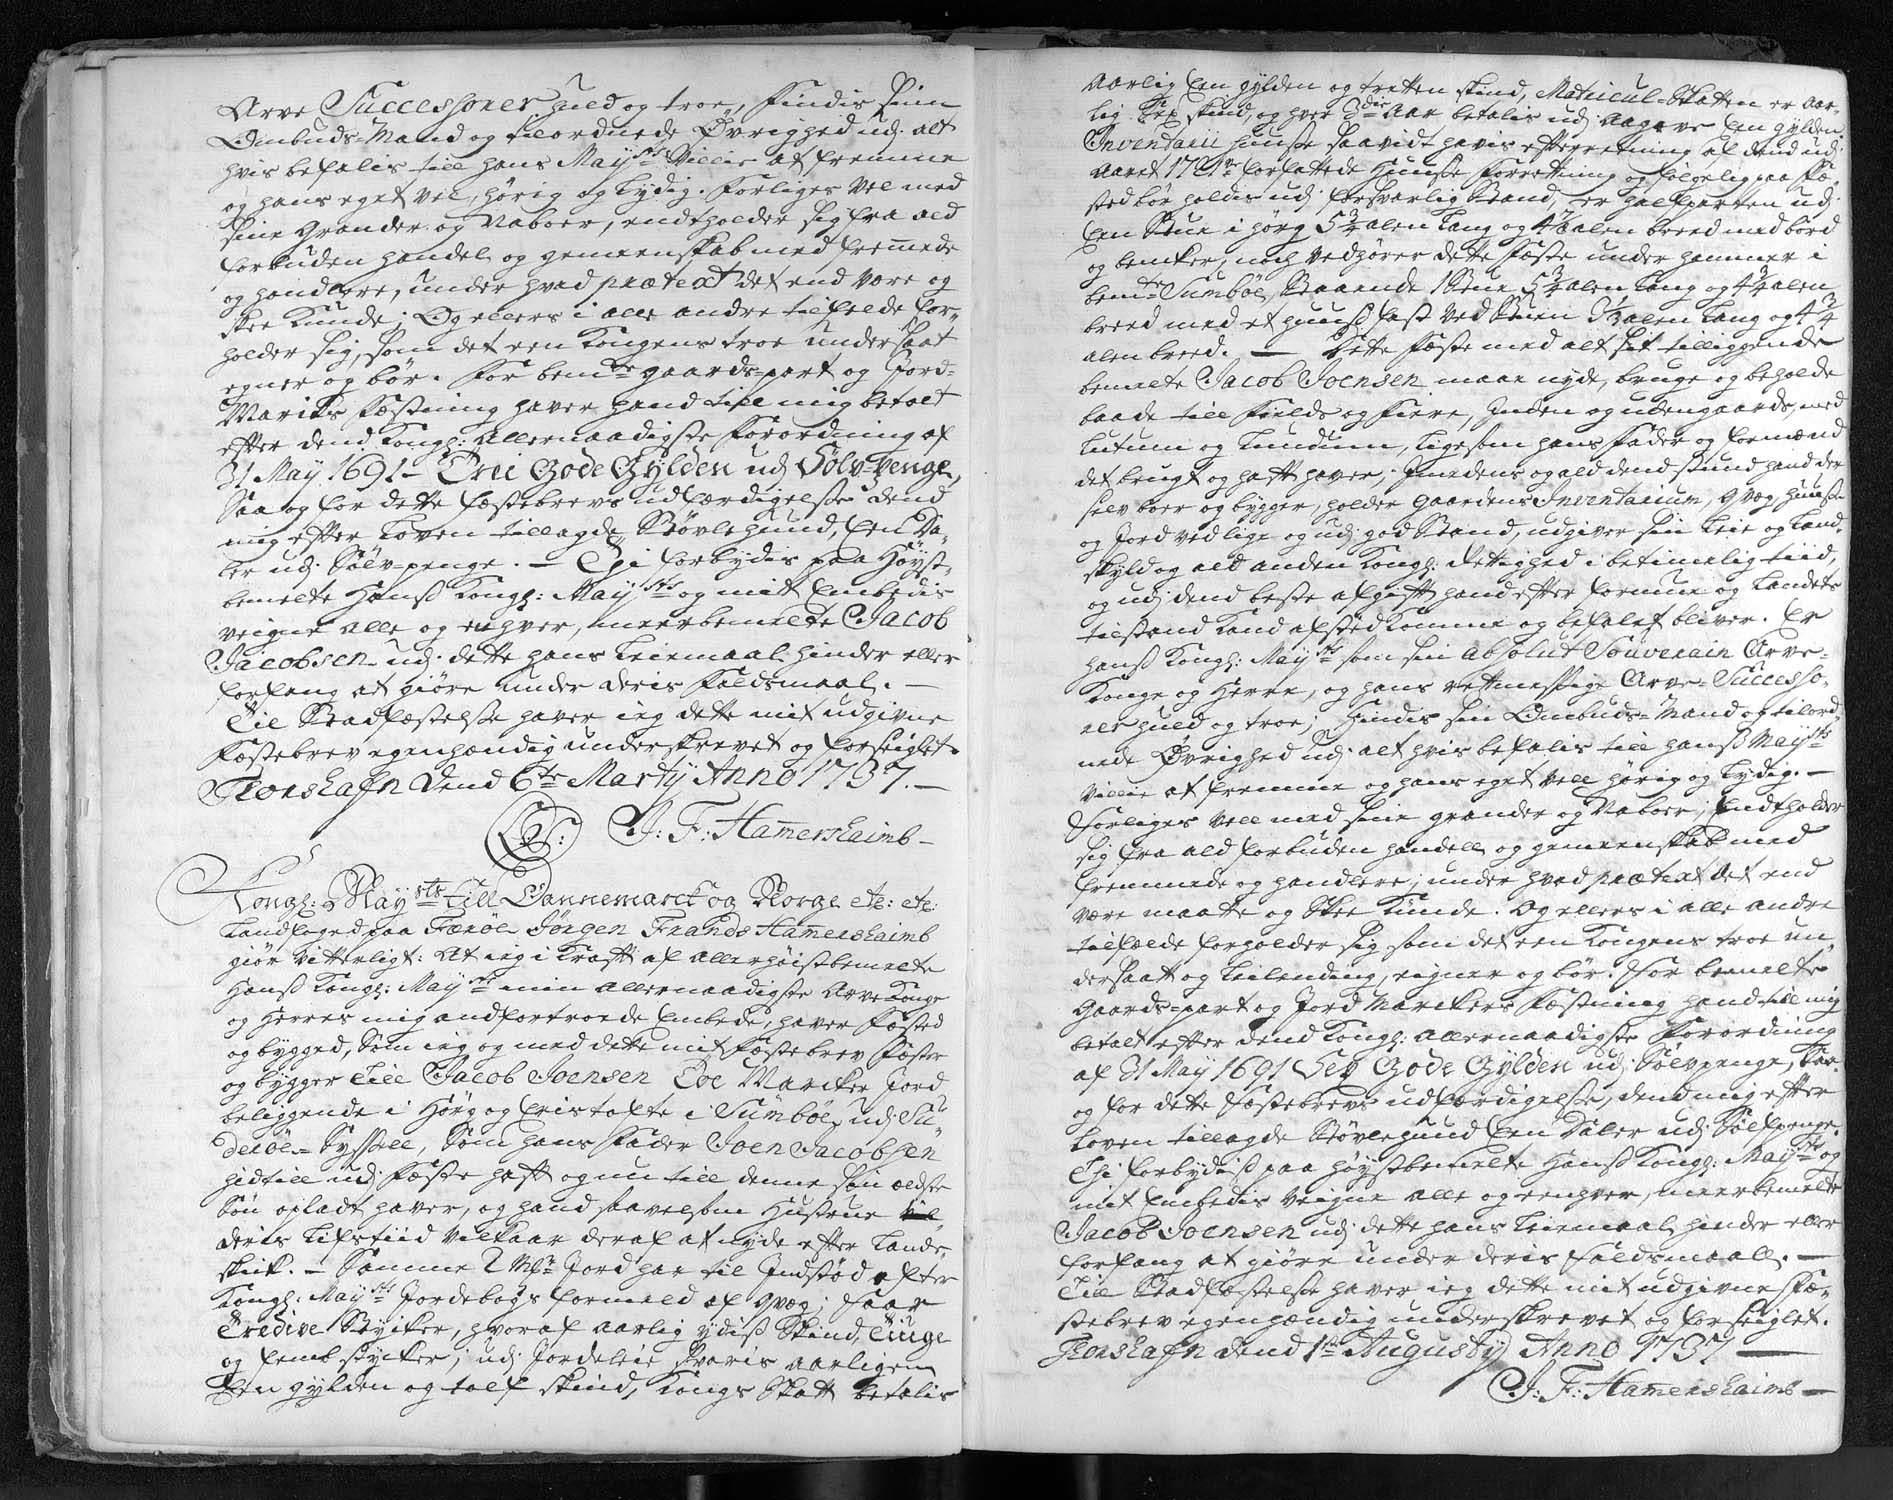 Arve Successorer huld og troe, findis sinn
Ombuds-Mand og tilordnede Øvrighed udj alt
hvis befalis till hans Mayts Villie at fremme
og hans eget vel, hørig og lydig. Forliges vel med
sine Grander og Naboer, endtholder sig fra ald
forbuden handel og gemeenskab med fremmede
og handlere, under hvad prætext det end være og
skee kunde; Og ellers i alle andre tilfelde for-
holder sig, som det een Kongens troe undersaat
egner og bør. For bemte gaards-part og Jord-
Markes Fæstning haver hand till mig betalt
efter dend Kongl: allernaadigste Forordning af
31 May 1691 - Trei Gode Gylden udj Sølv-penge,
Saa og for dette Fæstebrevs udferdigelse dend
mig efter Loven tillagde Støvlehund, Een Da-
ler udj Sølv-penge. - Thi forbydis paa Høyst-
bemelte Hans Kongl: Mayts og mit Embedis
veigne alle og enhver, meerbemelte Jacob
Jacobsen udj dette hans Leiemaal hinder eller
forfang at giøre under deris Faldsmaal. -
Til Stadfæstelse haver ieg dette mit udgivne
Fæstebrev egenhændig underskrevet og forseiglet.
Thorshafn Dend 6te Martij Anno 1737. -
(LS:) J: F: Hamershaimb -
Kongl: Mayts till Dannemarck og Norge etc: etc:
Landfoged paa Færøe Jørgen Frands Hamershaimb
giør vitterligt: At ieg i Krafft af allerhøistbemelte
Hans Kongl: Mayts min allernaadigste Arve Konge
og Herres mig andfortroede Embede, haver Fæsted
og bygged, Som ieg og med dette mit Fæstebrev Fæster
og bygger till Jacob Joensen Toe Marcker Jord
beliggende i Hørg og Eristofte i Sumbøe, udj Su-
derøe-Syssell, Som hans Fader Joen Jacobsen
hidtill udj Fæste hafft og nu till denne sin eldste
Søn opladt haver, og hand saavelsom Hustrue
deris Lifstiid vilkaar deraf at nyde efter Lands
skik. - Samme 2 Mkr Jord har til Indstød efter
Kongl: Mayts Jordebogs formeld af qvæg; Faar
Tredive Stycker, hvoraf aarlig ydis Skind, Tiuge
og femb stycker; udj Jordeleie svaris aarligen
Een gylden og tolf skind, Kongs Skatt betalis
aarlig Een gylden og tretten skind, Matricul-Skatten er aar-
lig Sex skind, og hver 3die Aar betalis udj Aagave Een gylden
Inventarii Huuse saavidt havis efterretning af dend udj
Aaret 1721 forfattede Huuse Forretning og følgelig paa Fæ-
sted bør holdis udj forsvarlig Stand, er halfparten udj
Een Stue i hørg 5¾ alen lang og 4¾ alen breed med bord
og bencker, noch vedhører dette Fæste under hammer i
bemte Sumbøe, Staaende 1 Stue 5¾ alen lang og 4¾ alen
breed med et huus fast ved Stuen 3½ alen lang og 4¾
alen breed. - Dette Fæste med alt sit tilliggende
bemelte Jacob Joensen maae nyde, bruge og beholde
baade till Fields og Fiere, Inden og udengaards, med
Lutum og Lundum, ligesom hans Fader og formænd
det brugt og hafft haver, Imedens og ald dend stund hand der
selv boer og bygger, holder gaardens Inventarium, qvæg, Huuse
og Jord ved lige og udj god Stand, udgiver sin Leie og Land-
skyld og ald anden Kongl: Rettighed i betimelig tiid,
og udj dend beste afgifft hand efter formue og Landets
tilstand kand afstedkomme og befalet bliver. Er
Hans Kongl: Mayts som sin Absolut Souverain Arve-
Konge og Herre, og hans retmessige Arve-Successo-
rer huld og troe; Hindis sin Ombuds-Mand og tilord-
nede Øvrighed udj alt hvis befalis till Hans Mayts
Villie at fremme og hans eget vell hørig og lydig. -
Forliges vell med sine grander og Naboer, Endtholder
sig fra ald forbuden handell og gemeenskab med
fremmede og handlere; under hvad prætext det end
være maatte og Skee kunde. Og ellers i alle andre
tilfælde forholder sig som det een Kongens troe un-
dersaat og Leilending, eigner og bør. For bemelte
Gaards-part og Jord Marckers Fæstning hand till mig
betalt efter dend Kongl: allernaadigste Forordning
af 31 May 1691 Sex Gode Gylden udj Sølvpenge, Saa-
og for dette Fæstebrevs udferdigelse, dend mig efter
Loven tillagde Støvlehund Een Daler udj Sølfpenge.
Thi forbydis paa høystbemelte Hans Kongl: Mayts og
mit Embedis Veigne alle og eenhver, meerbemelte
Jacob Joensen udj dette hans Leiemaal hinder eller
forfang at giøre under deris faldsmaall. -
Till Stadfæstelse haver ieg dette mit udgivne Fæ-
stebrev egenhændig underskrevet og forseiglet.
Thorshafn Dend 1ste Augustij Anno 1737 -
J: F: Hamershaimb -